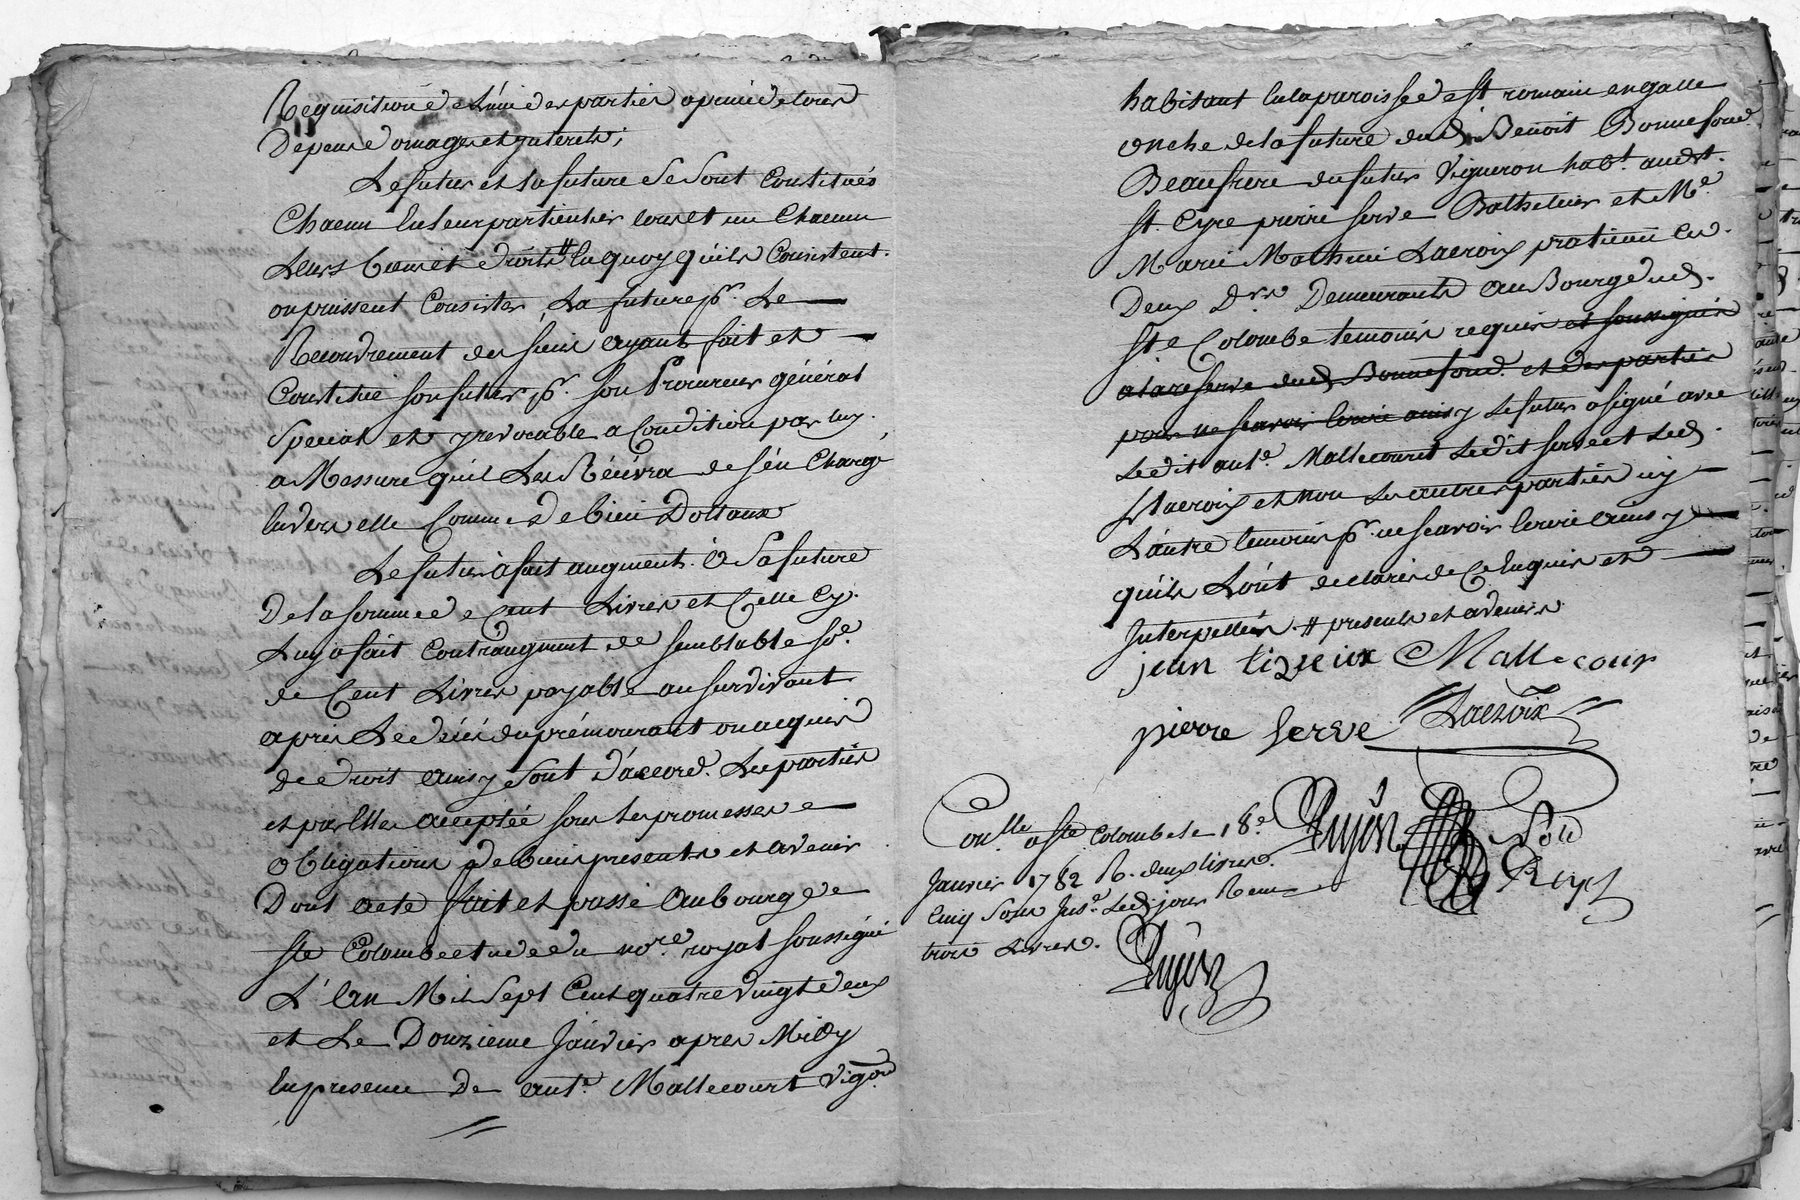 Requisition de l'une des parties a peine de tous
Depens domages et ynterets;
Le futur et la future se sont Constitués
Chacun en leur particulier tous et un Chacun
Leurs biens et droits # en quoy quils Consistent
ou puissent Consister, La future pr. Le
Recouvrement des siens ayant fait et
Constitué son futur pr. son Procureur général
Special et yrevocable a Condition par luy
a Messure quil Les Récévra de s'én Chargé
Envers elle Comme De bien Dottaux
Le futur à fait augment. à Sa future
De la somme de Cent Livres et Celle Cy
Luy a fait Contráugment de semblable so.e
de Cent Livres payable au survivant
apres Le décés du prémourant ou acquis
De droit ainsy sont D'accord. Les parties
et par Elles acceptée sous Les promesses
obligations de biens presents et avenir
Dont acte fait et passé au bourg de
Ste Colombe etude du no.re royal soussigné
L'an Mil Sept Cent quatre vingt deux
et Le Douzieme Janvier apres Midy
En presence De ant.e Mallecourt Vig.on
habitant en la paroisse de st romain en galle
oncle de la future dud. Benoit Bonnefond
Beaufrere du futur Vigneron hab.t aud. st.
st. Cyre pierre serve Bathelier et M.e
Marie Mathieu Lacroix praticien Les
Deux D.rs Demeurants au Bourg dud.
ste Colombe temoins requis et soussignés
a la reserve dud. Bonnefond et des parties
pour ne scavoir Ecrire ainsy Le futur a signé avec
Le dit ant.e Mallecourt Le dit serve et Led.
Sr Lacroix et non Les autres parties ny
L'autre temoins pr. ne scavoir Ecrire ainsy
quils L'ont declarés de Ce Enquis et
Interpellés. # presents et avenir
jean lizieux Mallecour
pierre serve Lacroix
Con.lle a Ste Colombe le 18.e
Janvier 1782 R. deux livres
Cinq sous Ins.é Led. jour Reçu
trois Livres.
Dujon